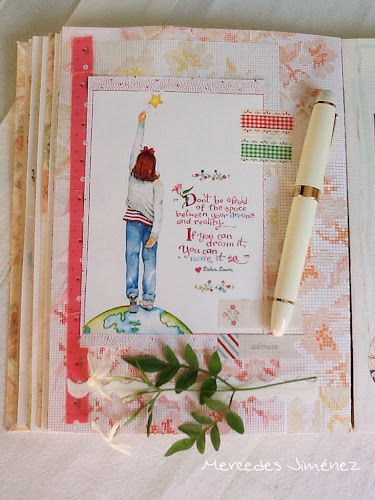 Don't be afraid
of the space
between your dreams
and reality.
If you can
dream it,
You can
make it so.
Belva Davis
Mercedes Jiménez